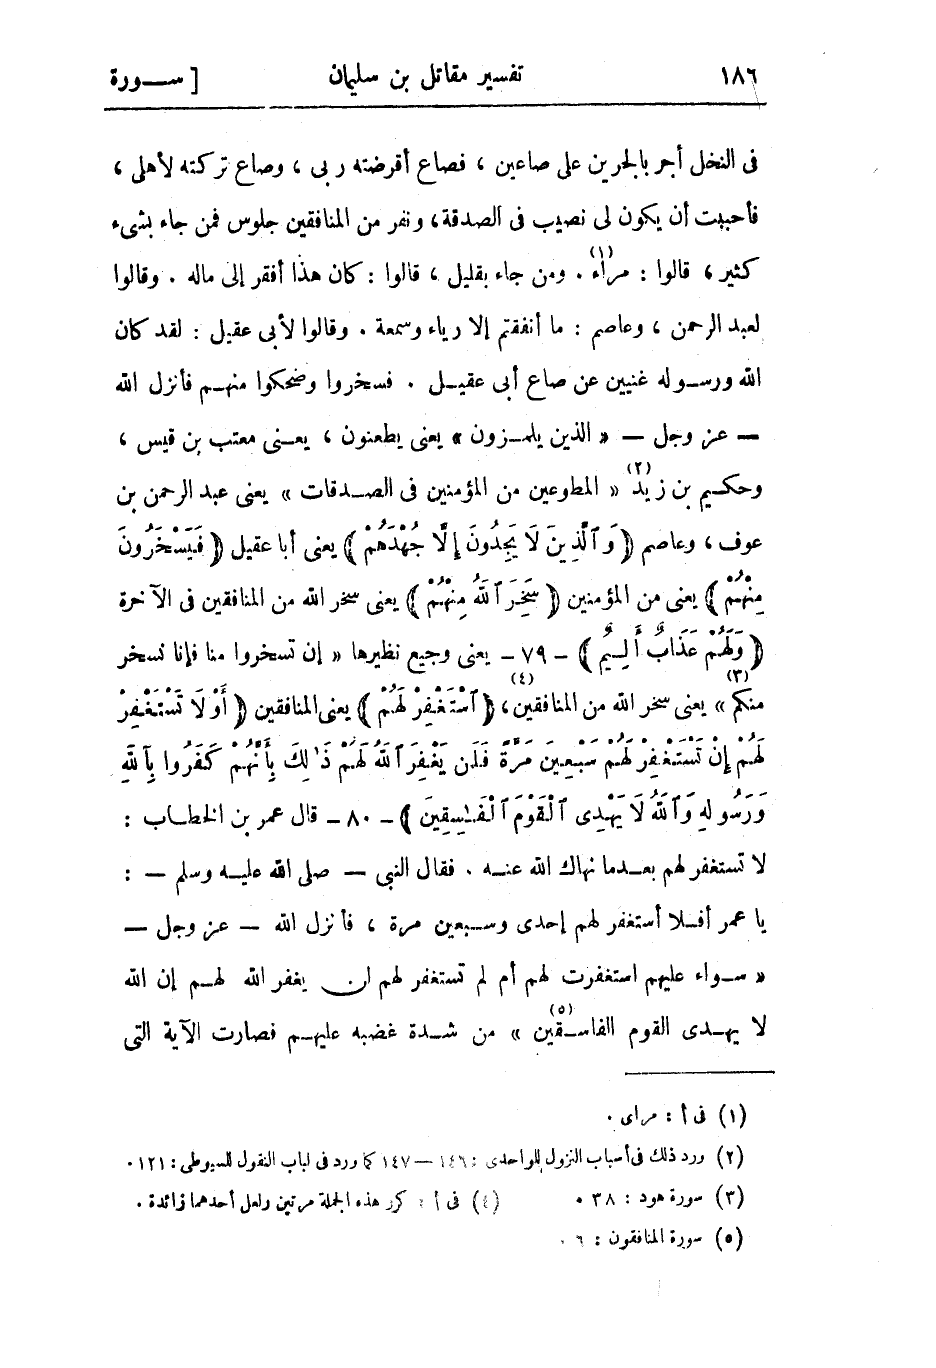 ١٨٦ تفسير مقاتل بن سليمان [ ســورة
فى النخل أجر بالجرين على صاعين ، فصاع أقرضته ربى ، وصاع تركته لأهلى ،
فأحببت أن يكون لى نصيب فى الصدقة، ونفر من المنافقين جلوس فمن جاء بشىء
كثير ، قالوا : مراء(١) . ومن جاء بقليل ، قالوا : كان هذا أفقر إلى ماله . وقالوا
لعبد الرحمن ، وعاصم : ما أنفقتم إلا رياء وسمعة . وقالوا لأبى عقيل : لقد كان
الله ورسوله غنيين عن صاع أبى عقيــل . فسخروا وضحكوا منهــم فأنزل الله
— عز وجل — « الذين يلمــزون » يعنى يطعنون ، يعــنى معتب بن قيس ،
وحكــيم بن زيد(٢) « المطوعين من المؤمنين فى الصــدقات » يعنى عبد الرحمن بن
عوف ، وعاصم ﴿ وَٱلَّذِينَ لَا يَجِدُونَ إِلَّا جُهْدَهُمْ ﴾ يعنى أبا عقيل ﴿ فَيَسْخَرُونَ
مِنْهُمْ ﴾ يعنى من المؤمنين ﴿ سَخِرَ ٱللَّهُ مِنْهُمْ ﴾ يعنى سخر الله من المنافقين فى الآخرة
﴿ وَلَهُمْ عَذَابٌ أَلِيمٌ ﴾ – ٧٩ – يعنى وجيع نظيرها « إن تسخروا منا فإنا نسخر
منكم(٣) » يعنى سخر الله من المنافقين(٤) ، ﴿ ٱسْتَغْفِرْ لَهُمْ ﴾ يعنى المنافقين ﴿ أَوْ لَا تَسْتَغْفِرْ
لَهُمْ إِنْ تَسْتَغْفِرْ لَهُمْ سَبْعِينَ مَرَّةً فَلَن يَغْفِرَ ٱللَّهُ لَهُمْ ذَٰلِكَ بِأَنَّهُمْ كَفَرُوا بِٱللَّهِ
وَرَسُولِهِ وَٱللَّهُ لَا يَهْدِى ٱلْقَوْمَ ٱلْفَـٰسِقِينَ ﴾ – ٨٠ – قال عمر بن الخطــاب :
لا تستغفر لهم بعــدما نهاك الله عنــه . فقال النبى — صلى الله عليــه وسلم — :
يا عمر أفــلا أستغفر لهم إحدى وســبعين مرة ، فأنزل الله — عز وجل —
« ســواء عليهم استغفرت لهم أم لم تستغفر لهم لن يغفر الله لهــم إن الله
لا يهــدى القوم الفاســقين(٥) » من شــدة غضبه عليهــم فصارت الآية التى
(١) فى أ : مراى .
(٢) ورد ذلك فى أسباب النزول للواحدى : ١٤٦ — ١٤٧ كما ورد فى لباب النقول للسيوطى : ١٢١ .
(٣) سورة هود : ٣٨ . (٤) فى أ : كرر هذه الجملة مرتين ولعل أحدهما زائدة .
(٥) سورة المنافقون : ٦ .